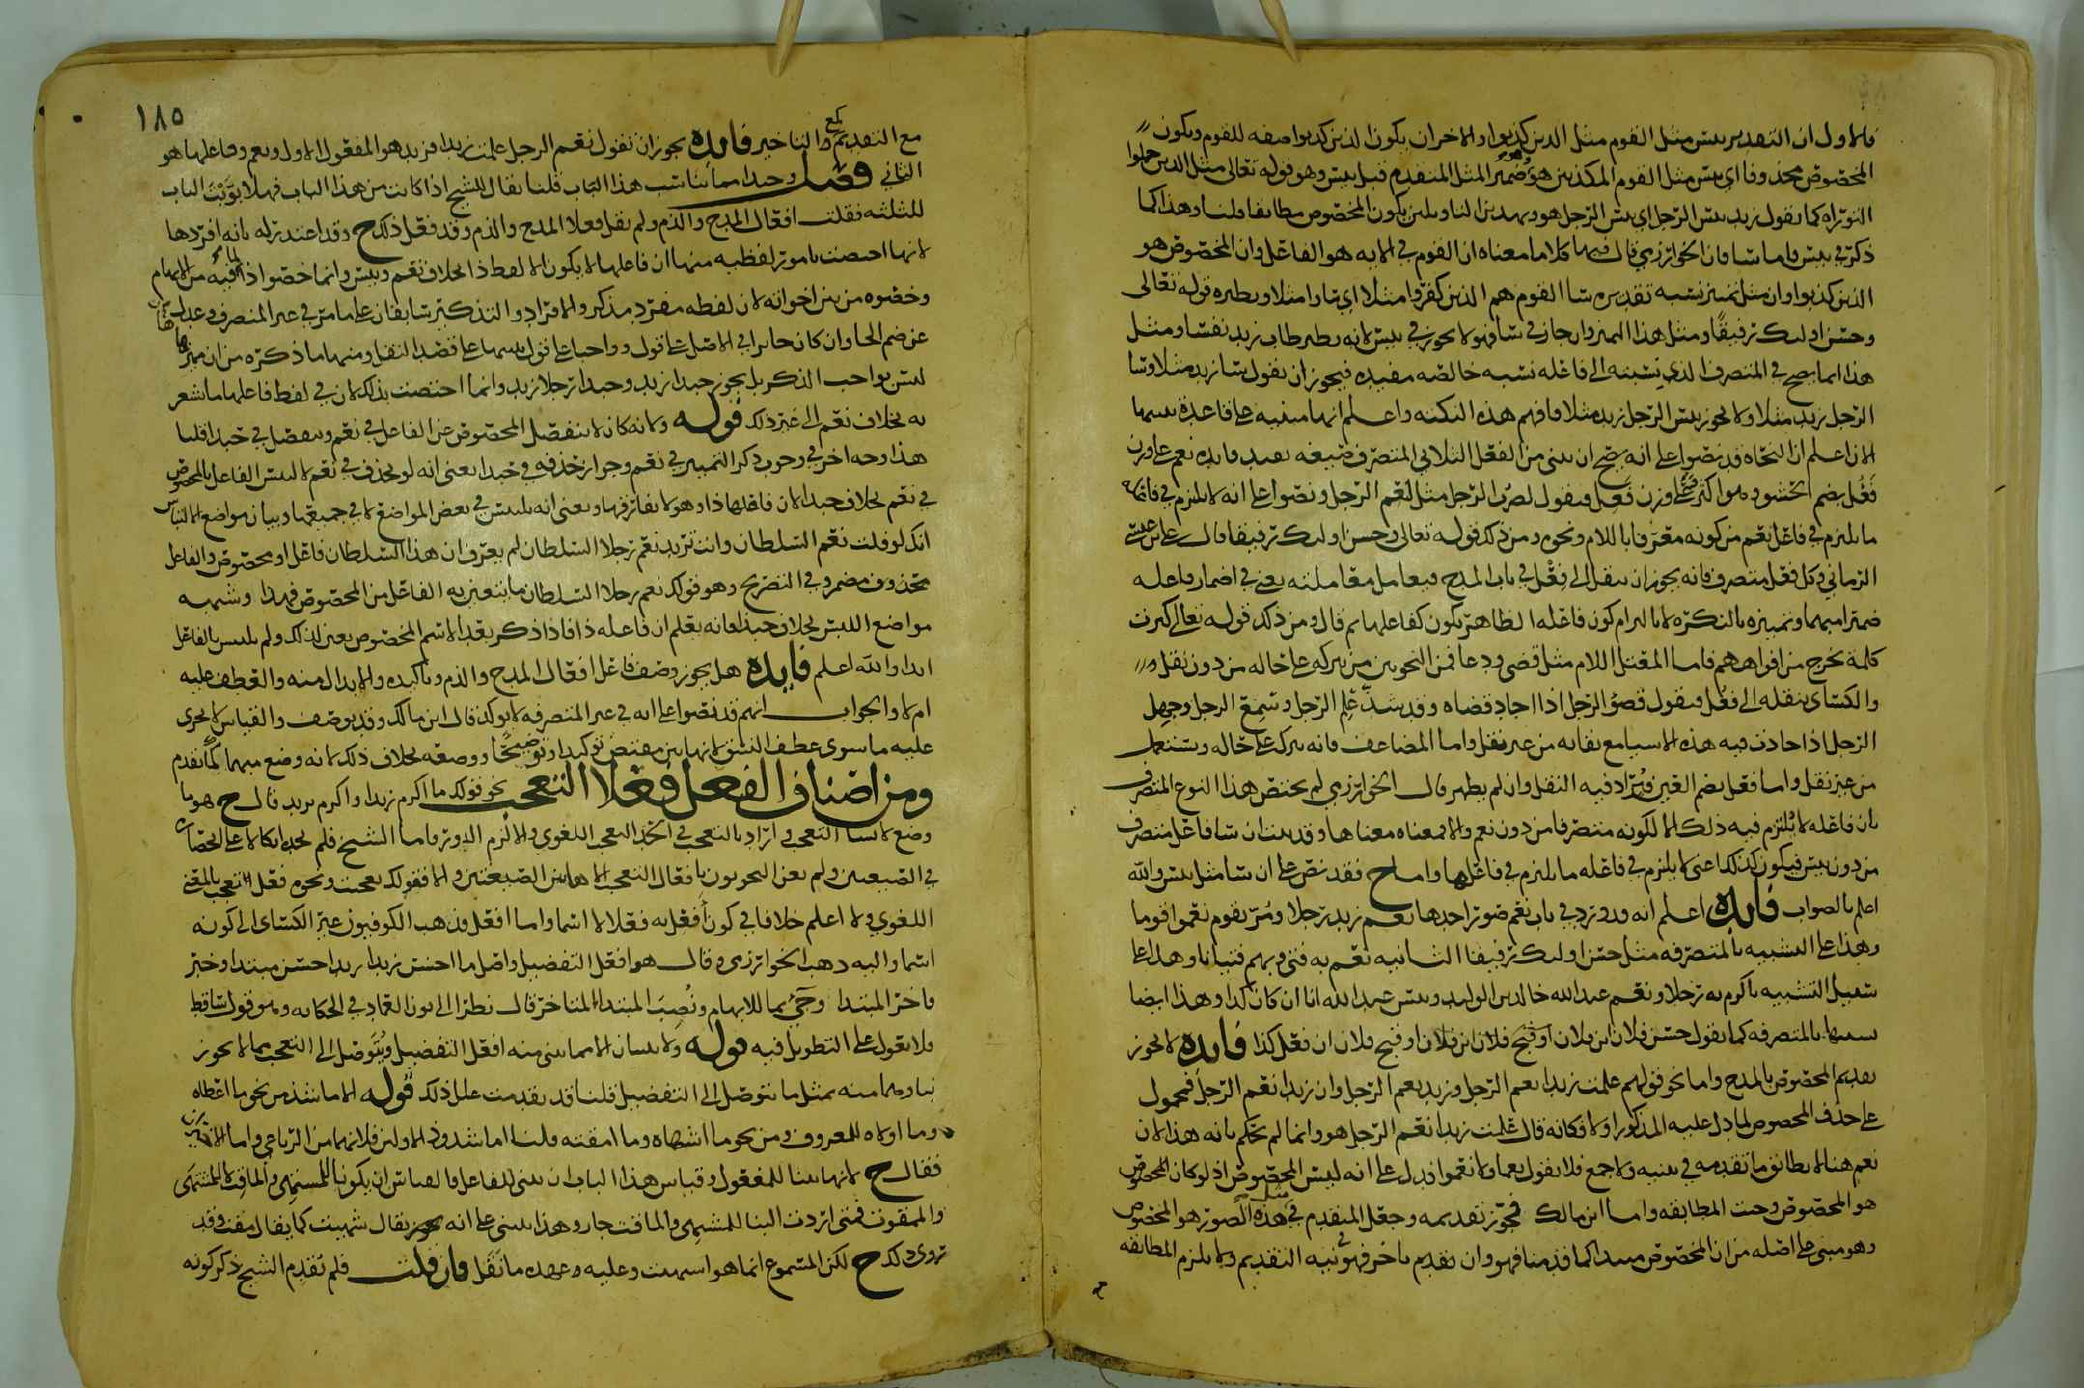 فالاول ان التقدير بئس مثل القوم مثل الذين كذبوا والاخر ان يكون الذين كذبوا صفه للقوم ويكون
المخصوص محذوفا اي بئس مثل القوم المكذبين هو وهو ضمير المثل المتقدم قبل بئس وهو قوله تعالى مثل الذين حملوا
التوراه كما تقول زيد بئس الرجل اي بئس الرجل هو وبهذين التاويلين يكون المخصوص مطابقا قلنا وهذا كما
ذكر في بئس واما ساء فان الخوارزمي قال فيها كلاما معناه ان القوم في الايه هو الفاعل وان المخصوص هو
الذين كذبوا وان مثل تمييز نسبه تقديره ساء القوم هم الذين كفروا مثلا اي ساوا مثلا ونظيره قوله تعالى
وحسن اولئك رفيقا ومثل هذا المميز وان جاز في ساء فهو لا يجوز في بئس لانه نظير طاب زيد نفسا ومثل
هذا انما يصح في المتصرف الذي نسبته الى فاعله نسبه خالصه مفيده فيجوز ان تقول ساء زيد مثلا وساء
الرجل زيد مثلا ولا يجوز بئس الرجل زيد مثلا فافهم هذه النكته واعلم انها مبنيه على قاعدة
الان اعلم ان النحاه قد نصوا على انه يصح ان يبنى من الفعل الثلاثي المتصرف صيغه تفيد فايده نعم على وزن
فعل بضم الحشو وهو اكثر وعلى وزن فعل فيقول لضرب الرجل مثل لنعم الرجل ونصوا على انه لا يلتزم في فاعله
ما يلتزم في فاعل نعم من كونه معرفا باللام ونحوه ومن ذلك قوله تعالى وحسن اولئك رفيقا قال علي بن عيسى
الرماني وكل فعل متصرف فانه يجوز ان ينقل الى فعل في باب المدح فيعامل معاملته يعني في اضمار فاعله
ضميرا مبهما وتمييزه بالنكره لا بالزام كون فاعله الظاهر يكون كفاعلها ثم قال ومن ذلك قوله تعالى كبرت
كلمة تخرج من افواههم فاما المعتل اللام مثل قضى ودعا فمن النحويين من يتركه على حاله من دون نقل
والكسائي ينقله الى فعل فيقول قضو الرجل اذا اجاد قضاه وقد شذ علم الرجل وسمع الرجل وجهل
الرجل اذا جادت فيه هذه الاشيا مع بقائه من غير نقل واما المضاعف فانه يترك على حاله ويستعمل
من غير نقل واما فعل بضم العين فيراد فيه النقل وان لم يظهر قال الخوارزمي لم يختص هذا النوع المتصرف
بان فاعله لا يلتزم فيه ذلك الا لكونه متصرفا من دون نعم والا فمعناه معناها وقد بينت ان ساء فاعل متصرف
من دون بئس فيكون كذلك اعني لا يلتزم في فاعله ما يلتزم في فاعلها واما ح فقد نص على ان ساء مثل بئس والله
اعلم بالصواب فايده اعلم انه قد ورد في باب نعم صور احدها نعم زيد رجلا ومر بقوم نعموا قوما
وهذا على التشبيه بالمتصرفه مثل حسن اولئك رفيقا الثانيه نعم به فتى وبهم فتيانا وهذا على
سبيل التشبيه باكرم به رجلا ونعم عبد الله خالد بن الوليد وبئس عبد الله انا ان كان كذا وهذا ايضا
بالمتصرفه كما تقول حسن فلان ابن فلان او قبح فلان ابن فلان او قبح فلان ان فعل كذا فايده لا يجوز
تقديم المخصوص بالمدح واما نحو قولهم علمت زيدا نعم الرجل وزيد نعم الرجل وان زيدا نعم الرجل فمحمول
على حذف المخصوص لما دل عليه المذكور اولا فكانه قال علمت زيدا نعم الرجل هو وانما لم نحكم بانه هذا لان
نعم هنا لا يطابق ما تقدمه في تثنيه ولا جمع فلا تقول نعما ولا نعموا فدل على انه ليس المخصوص اذ لو كان المخصوص
هو المخصوص وجبت المطابقه واما ابن مالك فجوز تقديمه وجعل المتقدم في مثل هذه الصور هو المخصوص
وهو مبني على اصله من ان المخصوص مبتدا كما قدمنا فهو وان تقدم باخر فهو في نيه التقديم ولا يلزم المطابقه
١٨٥
مع التقديم كمع والتاخير فايده يجوز ان تقول نعم الرجل علمت زيدا فزيد هو المفعول الاول ونعم وفاعلها هو
الثاني فصل وحبذا مما يناسب هذا الباب قلنا يقال للشيخ اذا كانت من هذا الباب فهلا بوبت الباب
للثلثه فقلت افعال المدح والذم ولم تقل فعلا المدح والذم وقد فعل ذلك ح وقد اعتذر له بانه افردها
لانها اختصت بامور لفظيه منها ان فاعلها لا يكون الا لفظ ذا بخلاف نعم وبئس وانما خصوا ذا لما فيه من الابهام
وخصوه من بين اخوانه لان لفظه مفرد مذكر والافراد والتذكير سابقان على ما مر في غير المنصرف
عن ضم الحا وان كان جايزا في الاصل على قول وواجبا على قول على قصد النقل ومنها ما ذكره من ان مميزها
ليس بواجب الذكر بل يجوز حبذا زيد وحبذا رجلا زيد وانما اختصت بذلك لان في لفظ فاعلها ما يشعر
به بخلاف نعم الى غير ذلك قوله ولانه كان لا ينفصل المخصوص عن الفاعل في نعم وينفصل في حبذا قلنا
هذا وجه اخر في وجوب ذكر التمييز في نعم وجواز حذفه في حبذا يعني انه لو حذف في نعم لالتبس الفاعل بالمخصوص
في نعم بخلاف حبذا لان فاعلها ذا وهو لا يفارقها ويعني انه يلتبس في بعض المواضع لا في جميعها وبيان مواضع الالتباس
انك لو قلت نعم السلطان وانت تريد نعم رجلا السلطان لم يعرف ان هذا السلطان فاعل او مخصوص والفاعل
محذوف مضمر وفي التصريح وهو قولك نعم رجلا السلطان ما يتعين به الفاعل من المخصوص فهذا وشبهه
مواضع اللبس بخلاف حبذا فانه يعلم ان فاعله ذا فاذا ذكر بعد الاسم المخصوص تعين لذلك ولم يلتبس بالفاعل
ابدا والله اعلم فايده هل يجوز وصف فاعل افعال المدح والذم وتاكيده والابدال منه والعطف عليه
ام لا والجواب انهم قد نصوا على انه في غير المتصرفه لا يوكد قال ابن مالك وقد يوصف والقياس لا يجرى
عليه ما سوى عطف النسق لانها بين مقتض توكيدا وتوضيحا ووصفه بخلاف ذلك لانه وضع مبهما كما تقدم
ومن اصناف الفعل فعلا التعجب نحو قولك ما اكرم زيدا واكرم بزيد قال ح هو ما
وضع لانشا التعجب واراد بالتعجب في الحد التعجب اللغوي والا لزم الدور واما الشيخ فلم يحده اتكالا على انحصاره
في الصيغتين ولم يعن النحويون بافعال التعجب الا هاتين الصيغتين والا فقولك تعجبت ونحوه فعل التعجب بالمعنى
اللغوي ولا اعلم خلافا في كون افعل به فعلا لا اسما واما افعل فذهب الكوفيون غير الكسائي الى كونه
اسما واليه ذهب الخوارزمي وقال هو افعل التفضيل واصل ما احسن زيدا زيد احسن مبتدا وخبر
فاخر المبتدا وجيء بما للابهام ونصب المبتدا المتاخر قال نظرا الى نون العماد في الحكايه وهو قول ساقط
فلا نقول على التطويل فيه قوله ولا يبنيان الا مما يبنى منه افعل التفضيل ويتوصل الى التعجب مما لا يجوز
بناوهما منه بمثل ما يتوصل الى التفضيل قلنا قد تقدمت علل ذلك قوله الا ما شذ من نحو ما اعطاه
وما اولاه للمعروف ومن نحو ما اشهاه وما امقته قلنا اما شذوذ الاولين فلانهما من الرباعي واما الاخيرين
فقال ح لانهما بنيا للمفعول وقياس هذا الباب ان يبنى للفاعل فالقياس ان يكونا للمشتهي والماقت لا للمشتهى
والممقوت فمتى اردت البنا للمشتهي والماقت جاز وهذا يبنى على انه يقال شهيت كما يقال مقت وقد
روى ذلك ح لكن المسموع انما هو اشتهيت وعليه وعهده ما نقل فان قلت فلم تقدم الشيخ ذكر كونه